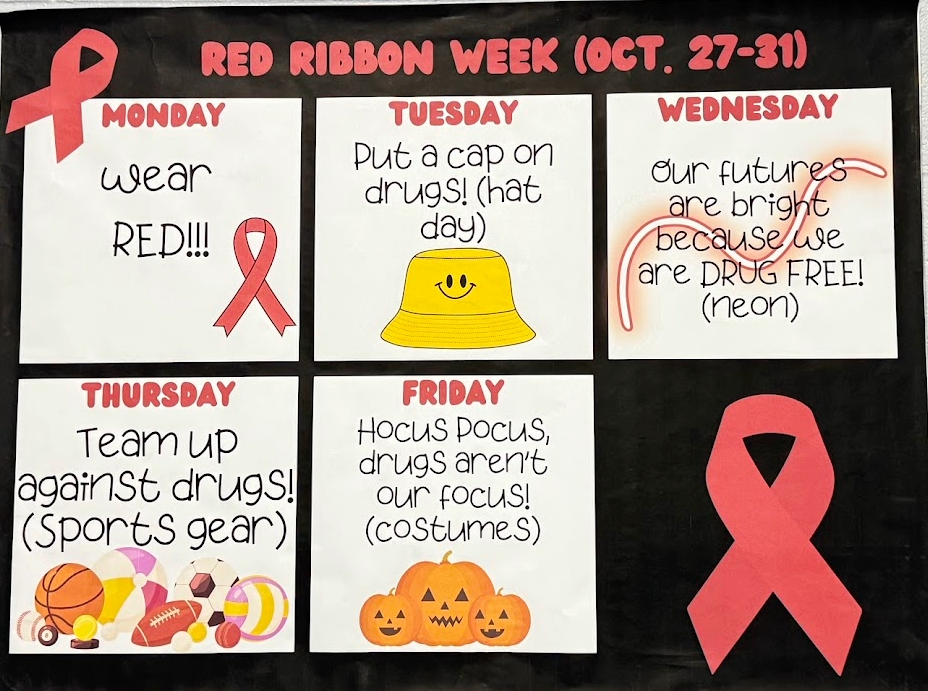 RED RIBBON WEEK (OCT. 27-31)
MONDAY
wear
RED!!!
TUESDAY
Put a cap on
drugs! (hat
day)
WEDNESDAY
Our futures
are bright
because we
are DRUG FREE!
(neon)
THURSDAY
Team up
against drugs!
(Sports gear)
FRIDAY
Hocus Pocus,
drugs aren't
our focus!
(costumes)